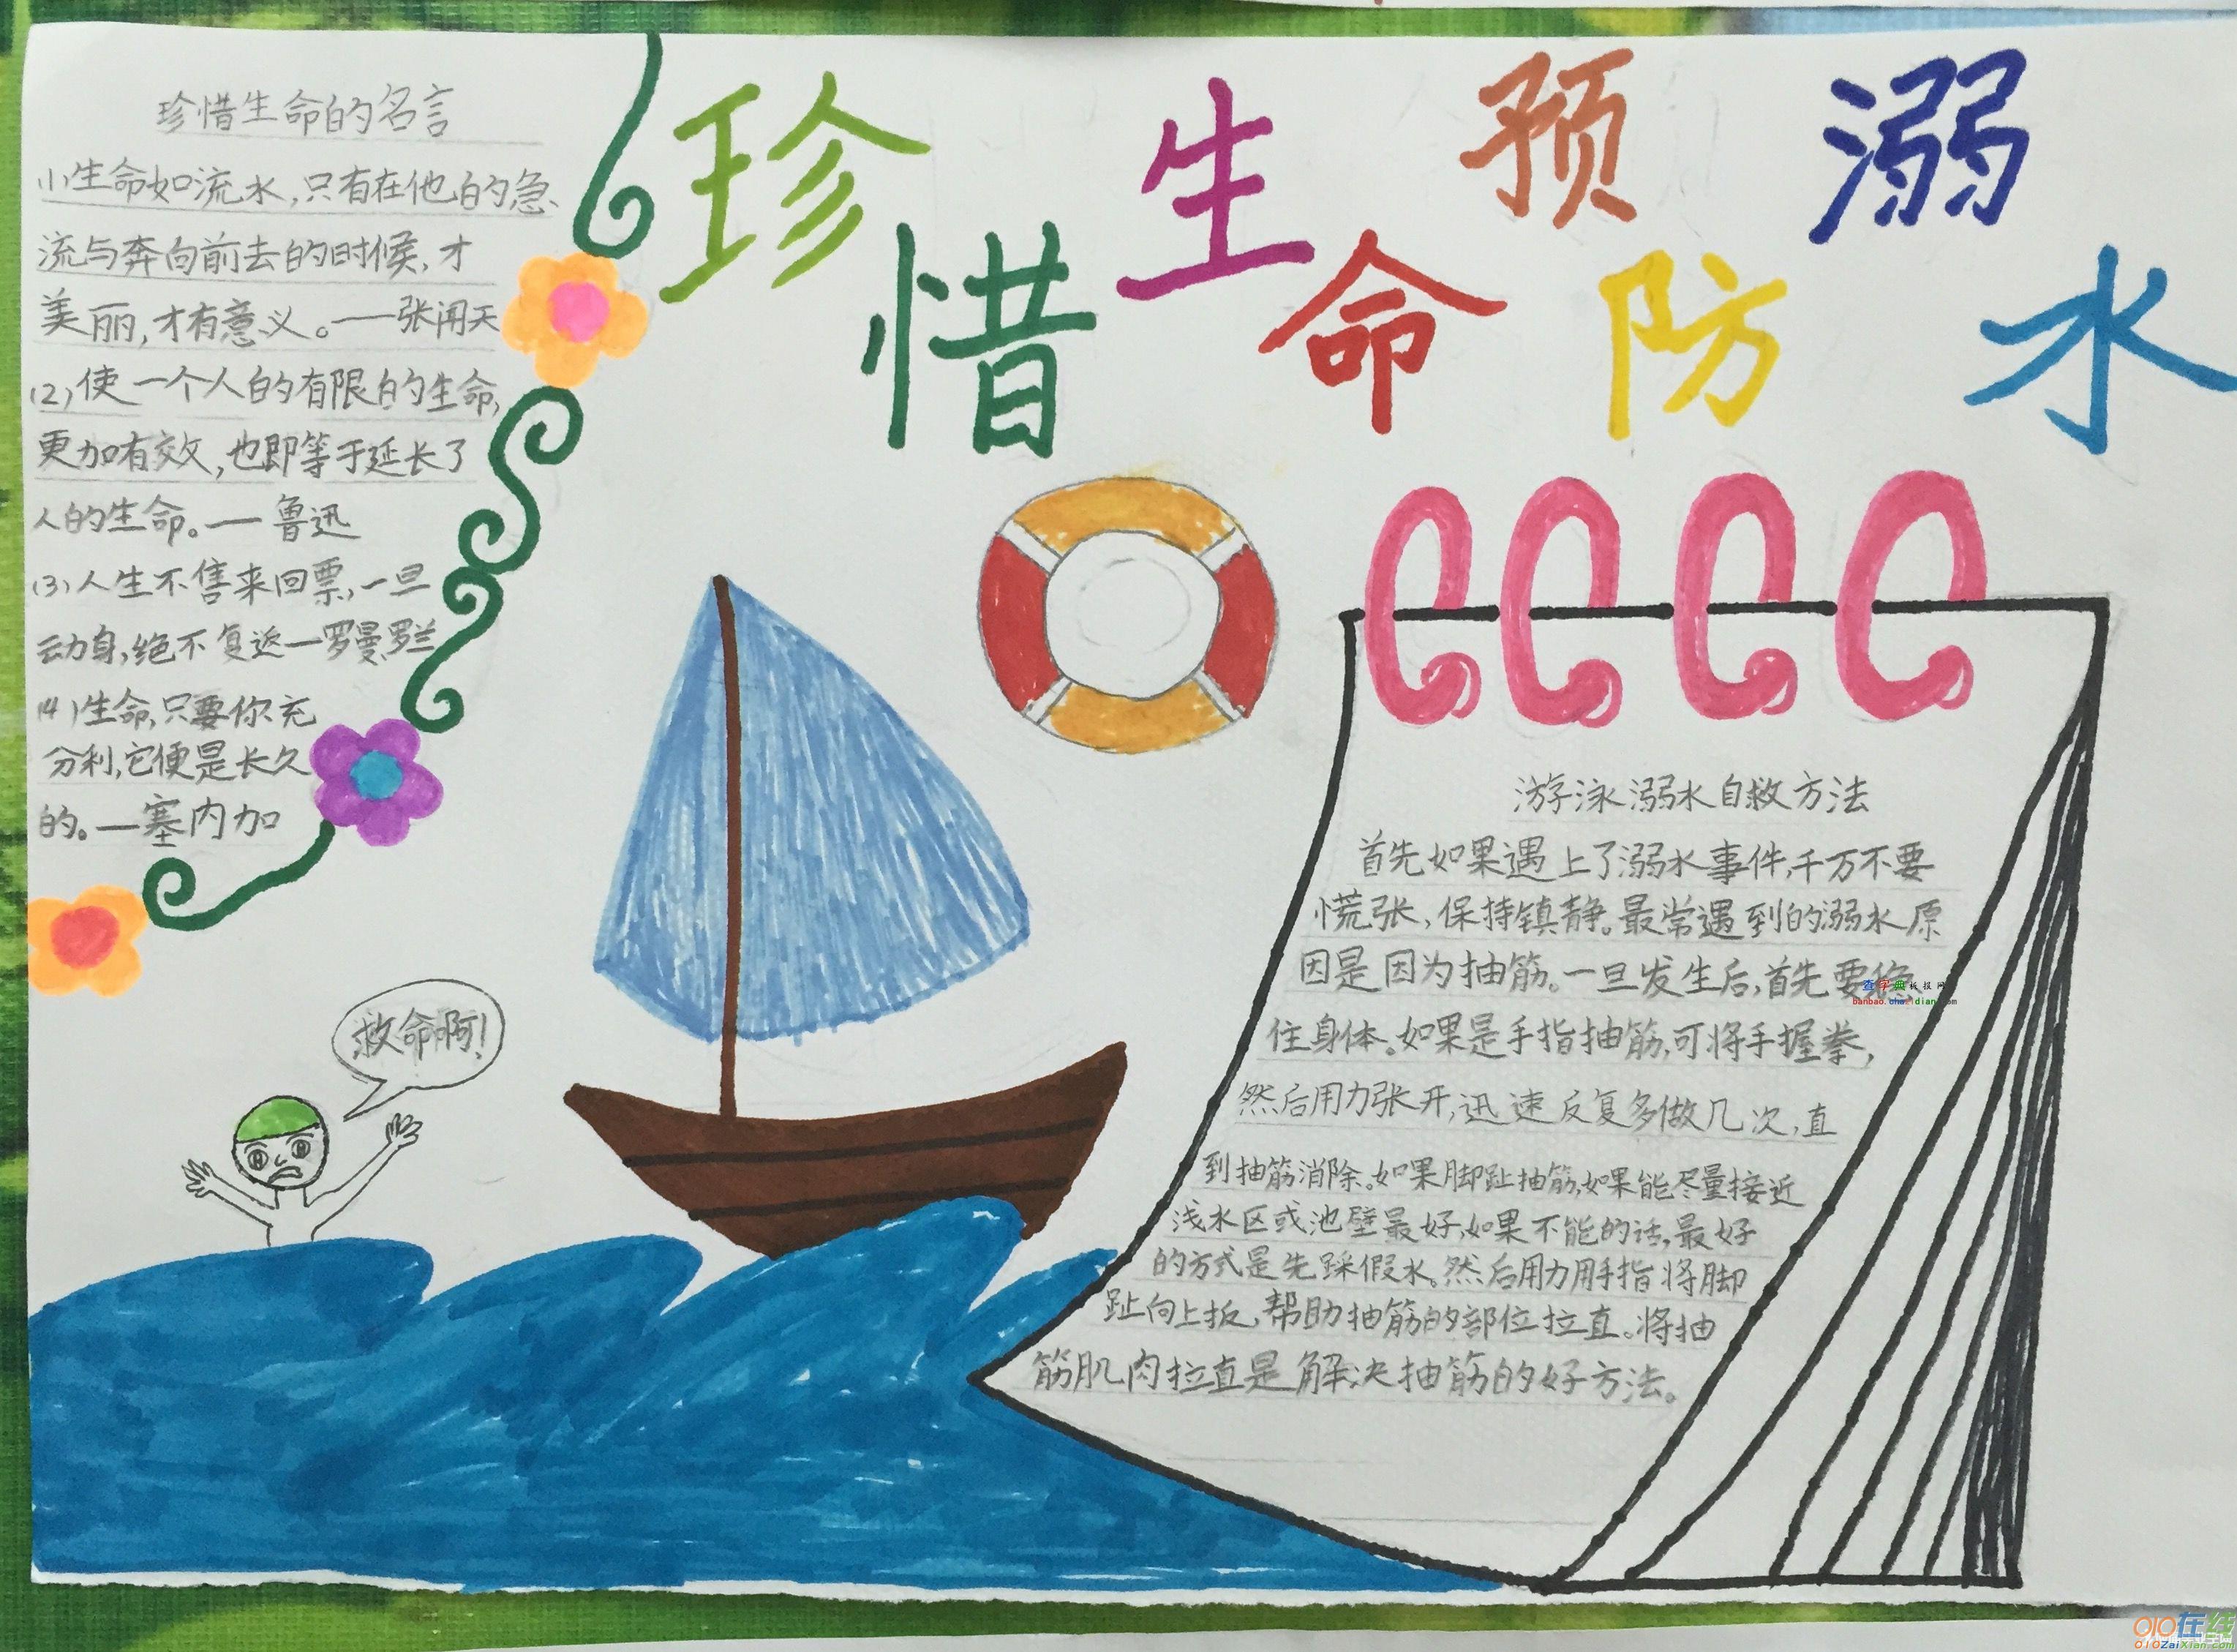 珍惜生命预防溺水
珍惜生命的名言
(1)生命如流水,只有在他的急
流与奔向前去的时候,才
美丽,才有意义。——张闻天
(2)使一个人的有限的生命,
更加有效,也即等于延长了
人的生命。——鲁迅
(3)人生不售来回票,一旦
动身,绝不复返—罗曼罗兰
(4)生命,只要你充
分利,它便是长久
的。—塞内加
救命啊!
游泳溺水自救方法
首先如果遇上了溺水事件,千万不要
慌张,保持镇静。最常遇到的溺水原
因是因为抽筋。一旦发生后,首先要稳
住身体。如果是手指抽筋,可将手握拳,
然后用力张开,迅速反复多做几次,直
到抽筋消除。如果脚趾抽筋,如果能尽量接近
浅水区或池壁最好,如果不能的话,最好
的方式是先踩假水。然后用力用手指将脚
趾向上扳,帮助抽筋的部位拉直。将抽
筋肌肉拉直是解决抽筋的好方法。
查字典板报网
010在线
010ZaiXian.com